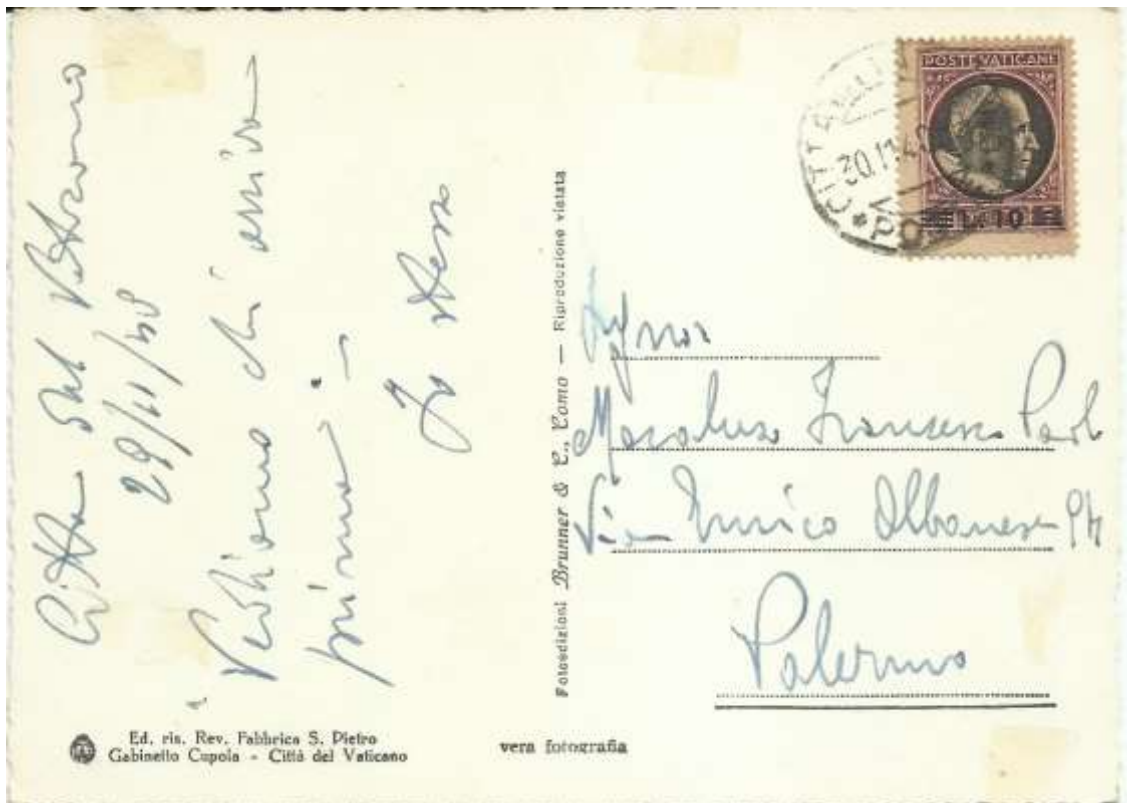 Città del Vaticano
29/11/48
Vediamo chi arriva
prima -
Io stesso
Ed. ris. Rev. Fabbrica S. Pietro
Gabinetto Cupola - Città del Vaticano
vera fotografia
Fotoedizioni Brunner & C., Como — Riproduzione vietata
POSTE VATICANE
L. 10
CITTÀ
30.11.4
POS
Signor
Macaluso Francesco Paolo
Via Enrico Albanese 94
Palermo